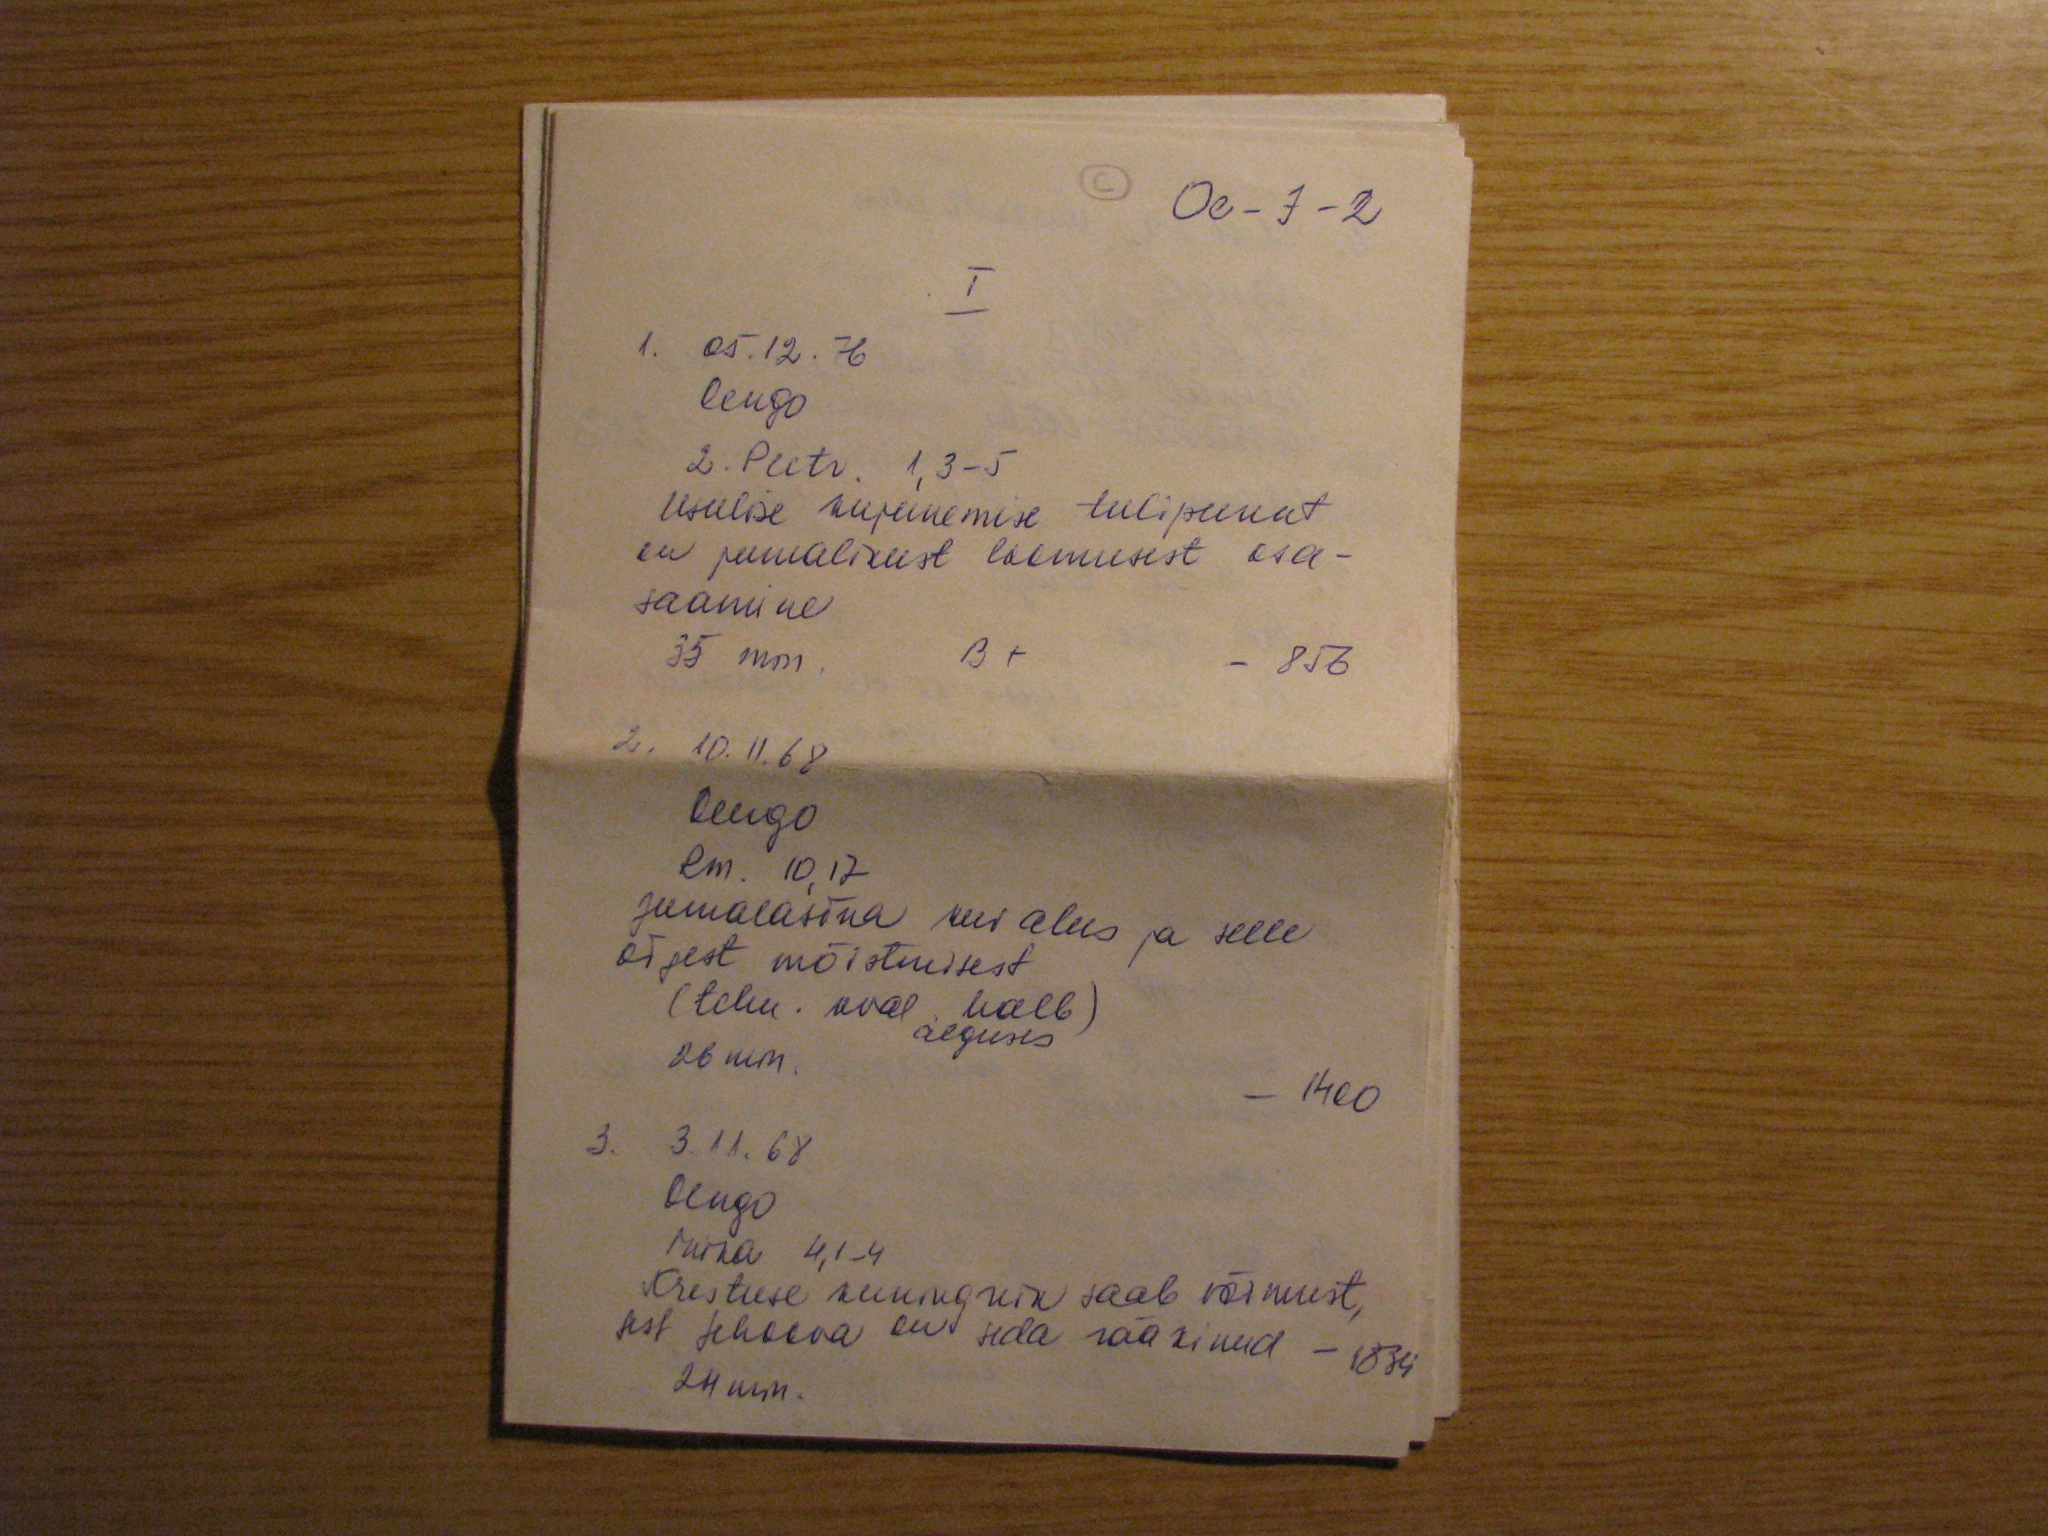 C
Oe-7-2
I
1. 05.12.76
Oengo
2. Peetr. 1,3-5
Usulise kujunemise tulipunkt
on jumalikust loomusest osa-
saamine
35 min. B+ - 856
2. 10.11.68
Oengo
Rm. 10,17
Jumalasõna kui alus ja selle
õigest mõistmisest
(tehn. kval. halb)
alguses
26 min.
- 1400
3. 3.11.68
Oengo
Miika 4,1-4
Kristuse kuningriik saab võimust,
sest Jehoova on seda rääkinud -
24 min.